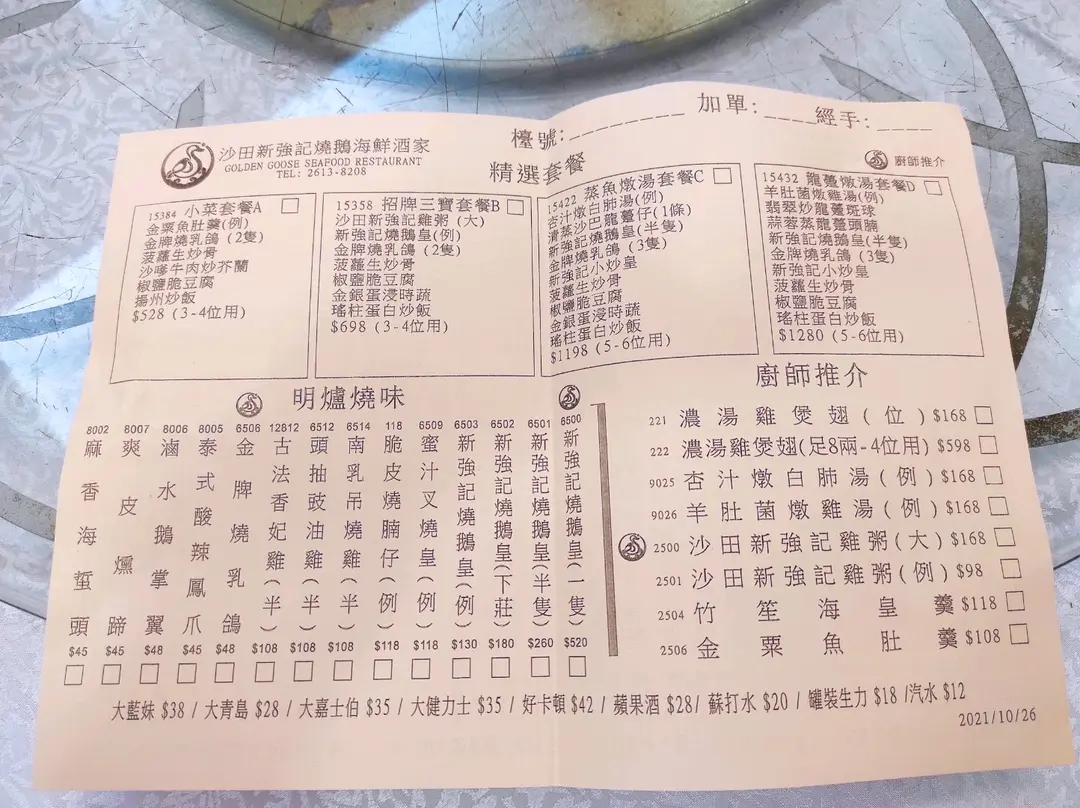 沙田新強記燒鵝海鮮酒家
GOLDEN GOOSE SEAFOOD RESTAURANT
TEL: 2613-8208
檯號:
加單:
經手:
精選套餐
廚師推介
15384 小菜套餐A
金粟魚肚羹(例)
金牌燒乳鴿 (2隻)
菠蘿生炒骨
沙嗲牛肉炒芥蘭
椒鹽脆豆腐
揚州炒飯
$528 (3-4位用)
15358 招牌三寶套餐B
沙田新強記雞粥 (大)
新強記燒鵝皇(例)
金牌燒乳鴿 (2隻)
菠蘿生炒骨
椒鹽脆豆腐
金銀蛋浸時蔬
瑤柱蛋白炒飯
$698 (3-4位用)
15422 蒸魚燉湯套餐C
杏汁燉白肺湯(例)
清蒸沙巴龍躉仔(1條)
新強記燒鵝皇(半隻)
金牌燒乳鴿 (3隻)
新強記小炒皇
菠蘿生炒骨
椒鹽脆豆腐
金銀蛋浸時蔬
瑤柱蛋白炒飯
$1198 (5-6位用)
15432 龍躉燉湯套餐D
羊肚菌燉雞湯(例)
翡翠炒龍躉斑球
蒜蓉蒸龍躉頭腩
新強記燒鵝皇(半隻)
金牌燒乳鴿 (3隻)
新強記小炒皇
菠蘿生炒骨
椒鹽脆豆腐
瑤柱蛋白炒飯
$1280 (5-6位用)
明爐燒味
8002 麻香海蜇頭 $45
8007 爽皮燻蹄 $45
8006 滷水鵝掌翼 $48
8005 泰式酸辣鳳爪 $45
6506 金牌燒乳鴿 $48
12812 古法香妃雞(半) $108
6512 頭抽豉油雞(半) $108
6514 南乳吊燒雞(半) $108
118 脆皮燒腩仔(例) $118
6509 蜜汁叉燒皇(例) $118
6503 新強記燒鵝皇(例) $130
6502 新強記燒鵝皇(下莊) $180
6501 新強記燒鵝皇(半隻) $260
6500 新強記燒鵝皇(一隻) $520
廚師推介
221 濃湯雞煲翅(位) $168
222 濃湯雞煲翅(足8兩-4位用) $598
9025 杏汁燉白肺湯(例) $168
9026 羊肚菌燉雞湯(例) $168
2500 沙田新強記雞粥(大) $168
2501 沙田新強記雞粥(例) $98
2504 竹笙海皇羹 $118
2506 金粟魚肚羹 $108
大藍妹 $38 / 大青島 $28 / 大嘉士伯 $35 / 大健力士 $35 / 好卡頓 $42 / 蘋果酒 $28/ 蘇打水 $20 / 罐裝生力 $18 /汽水 $12
2021/10/26